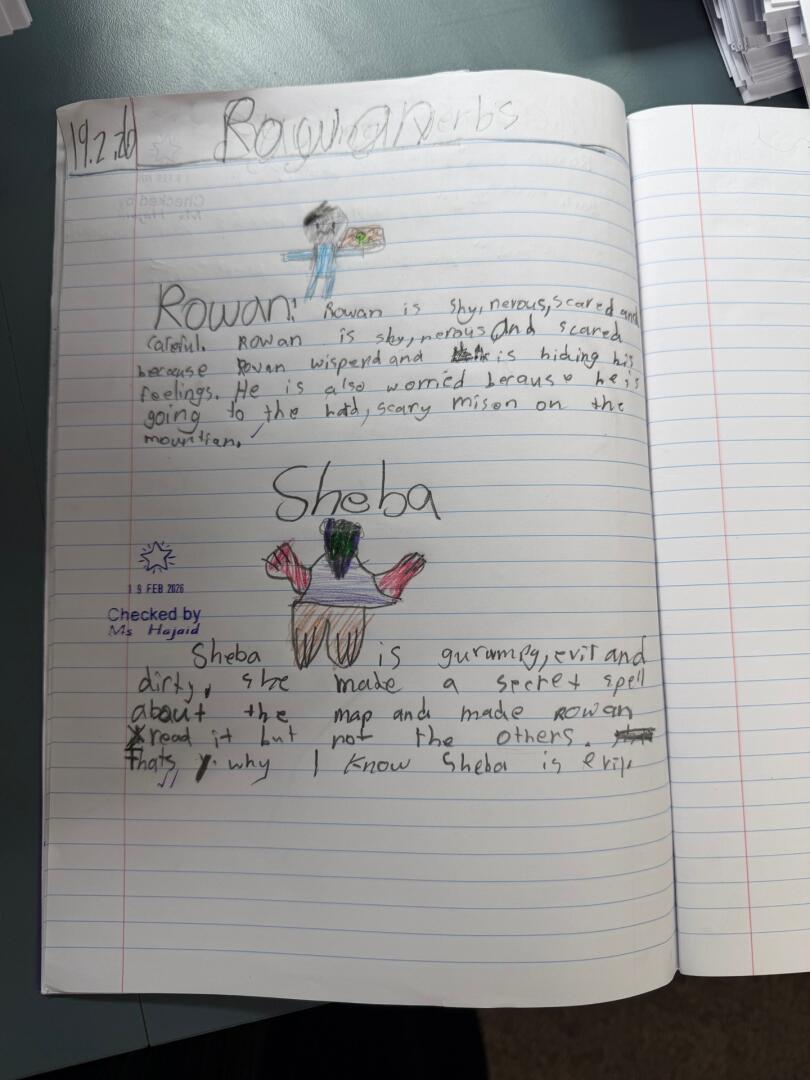 19.2.26
Rowan
Rowan: Rowan is shy, nerous, scared and
careful. Rowan is shy, nerous and scared
because Rowan wisperd and is hiding his
feelings. He is also worried because he is
going to the hard, scary mison on the
mountian.
Sheba
19 FEB 2026
Checked by
Ms Hajaid
Sheba is gurumpy, evil and
dirty, she made a secret spell
about the map and made Rowan
read it but not the others.
Thats why I know Sheba is evil.